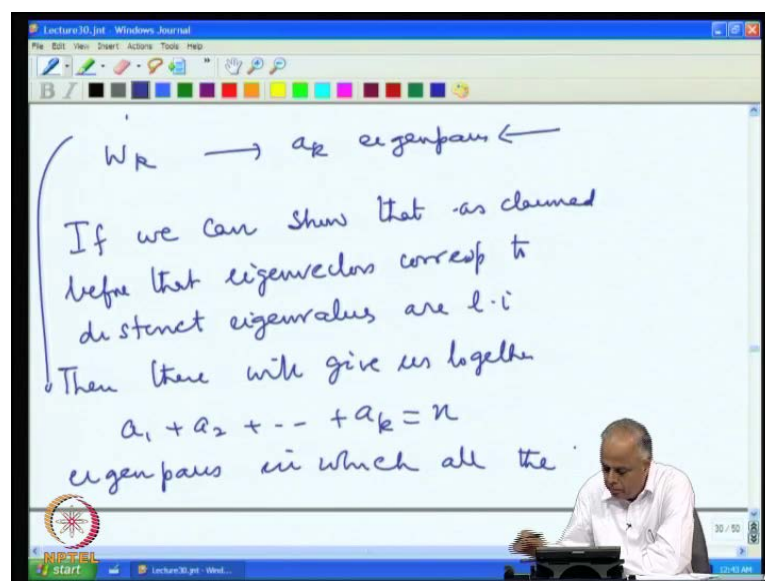 Lecture30.jnt - Windows Journal
File Edit View Insert Actions Tools Help
B I
W_k → a_k eigenpairs ←
If we can show that as claimed
before that eigenvectors corresp to
distinct eigenvalues are l.i
Then these will give us together
a₁ + a₂ + -- + a_k = n
eigenpairs in which all the
30 / 50
NPTEL
start Lecture30.jnt - Wind... 12:43 AM